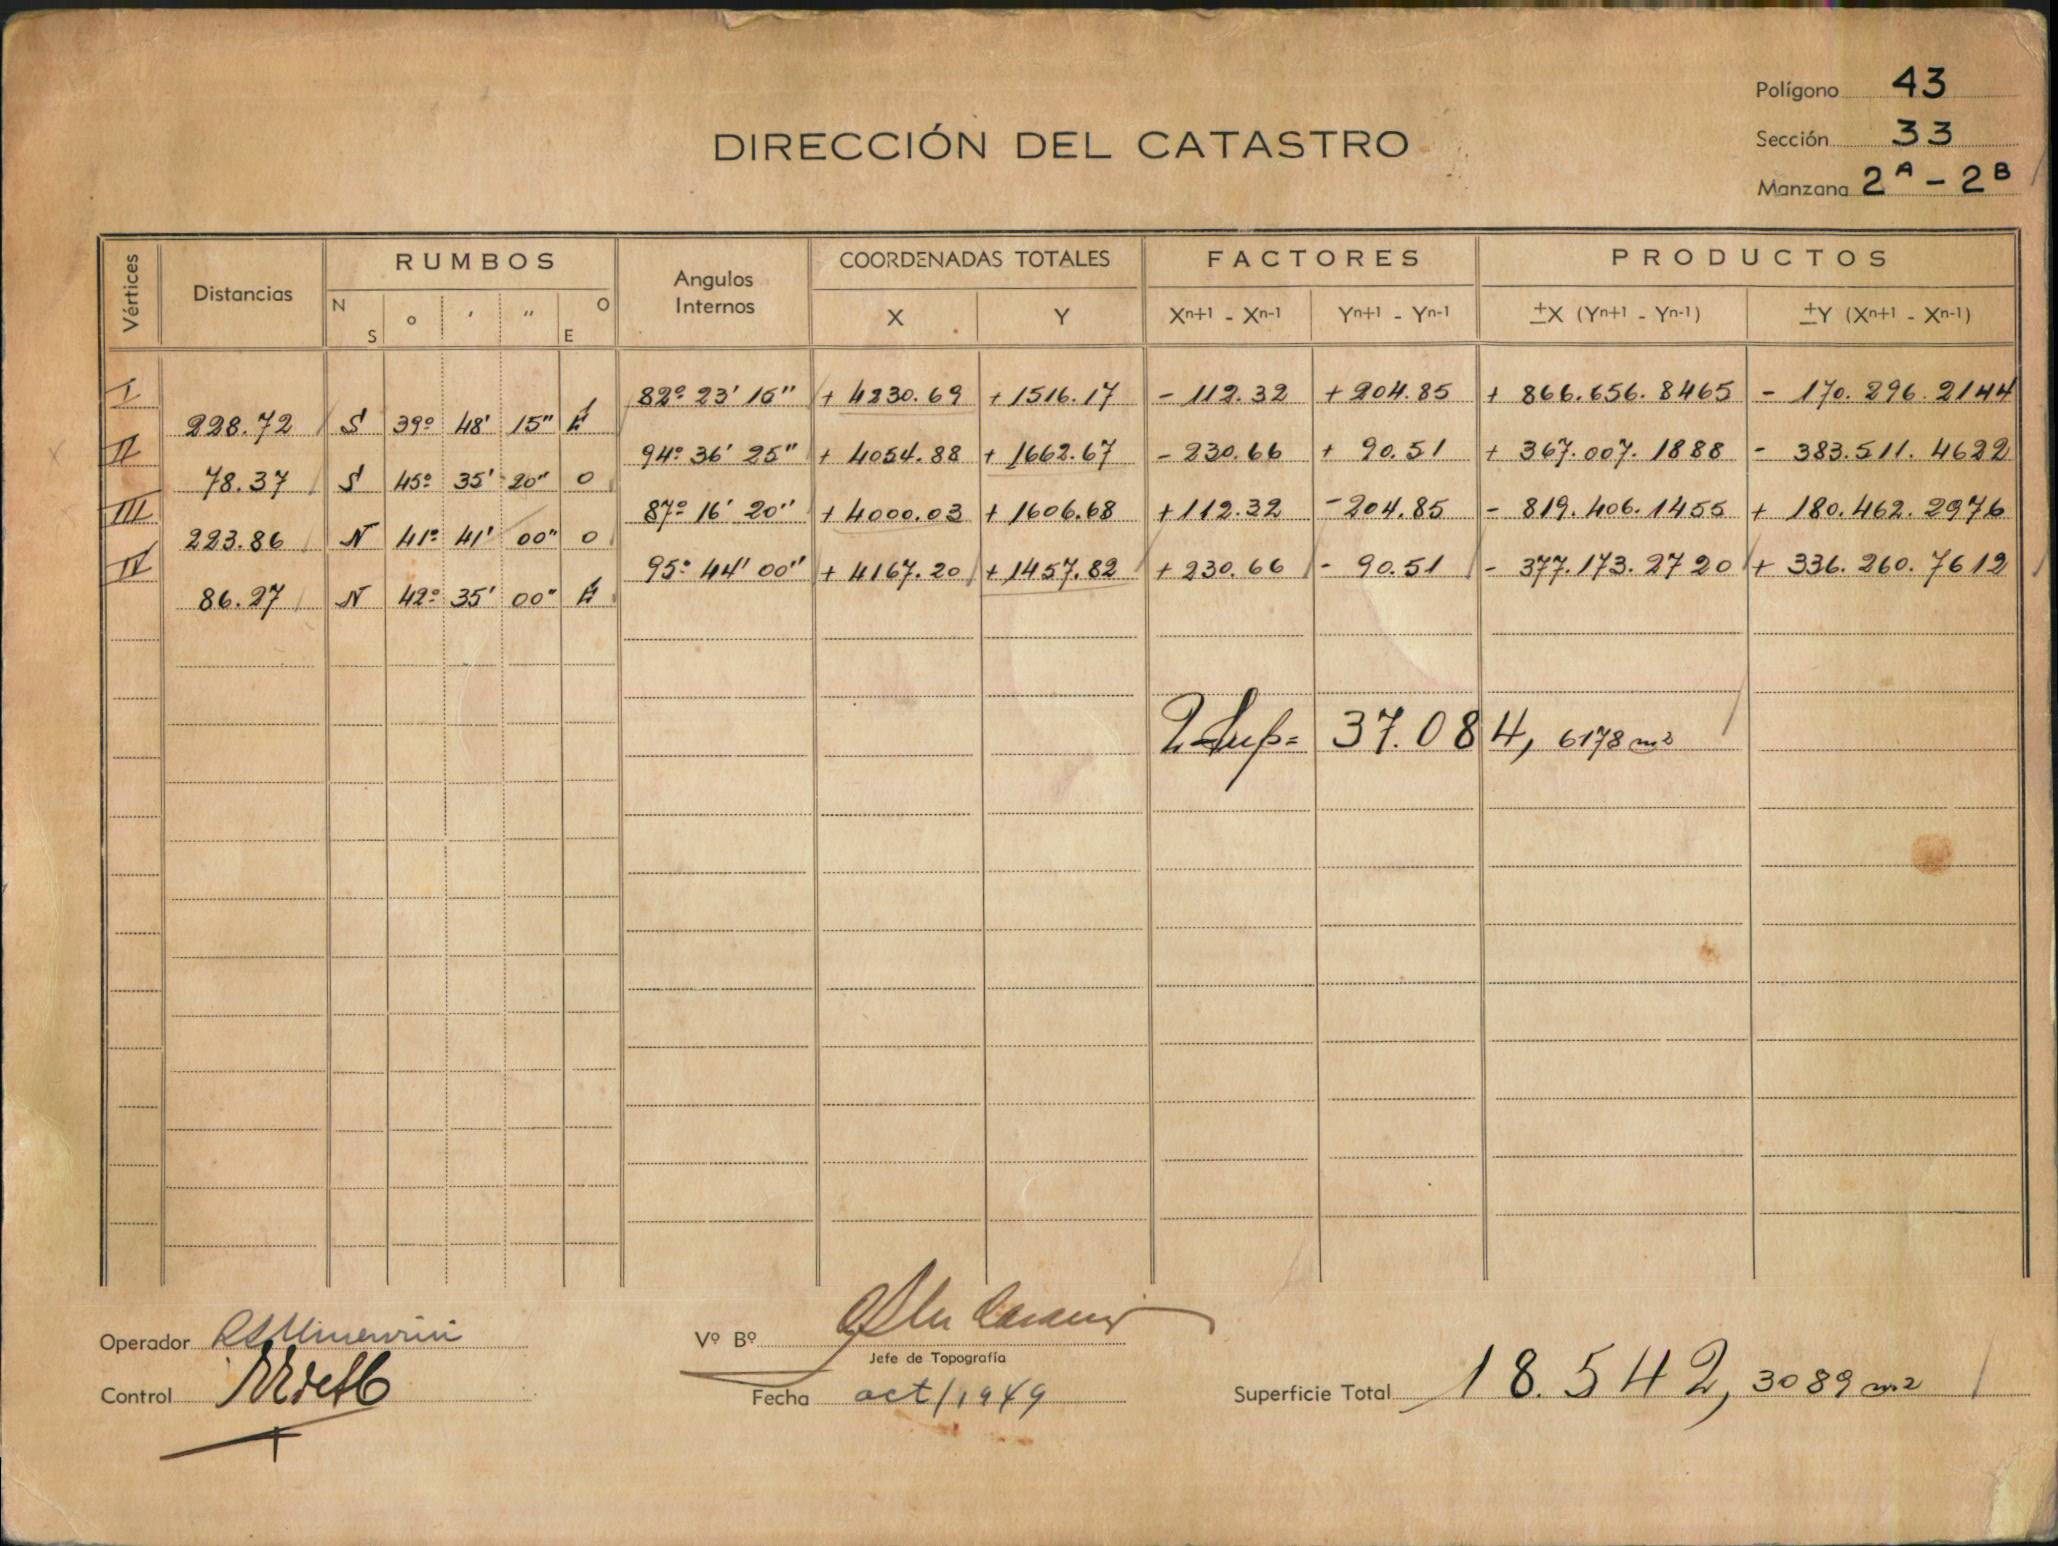 Polígono 43
DIRECCIÓN DEL CATASTRO
Sección 33
Manzana 2A - 2B
Vértices Distancias RUMBOS Angulos Internos COORDENADAS TOTALES FACTORES PRODUCTOS
N S o ' " O E X Y Xn+1 - Xn-1 Yn+1 - Yn-1 ±X (Yn+1 - Yn-1) ±Y (Xn+1 - Xn-1)
I 82º 23' 15" + 4230.69 + 1516.17 - 112.32 + 204.85 + 866.656.8465 - 170.296.2144
228.72 S 39º 48' 15" E
II 94º 36' 25" + 4054.88 + 1662.67 - 230.66 + 90.51 + 367.007.1888 - 383.511.4622
78.37 S 45º 35' 20" O
III 87º 16' 20" + 4000.03 + 1606.68 + 112.32 - 204.85 - 819.406.1455 + 180.462.2976
223.86 N 41º 41' 00" O
IV 95º 44' 00" + 4167.20 + 1457.82 + 230.66 - 90.51 - 377.173.2720 + 336.260.7612
86.27 N 42º 35' 00" E
2 Sup= 37.084, 6178 m2
Operador
Vº Bº
Jefe de Topografía
Control
Fecha oct/1949
Superficie Total 18.542, 3089 m2